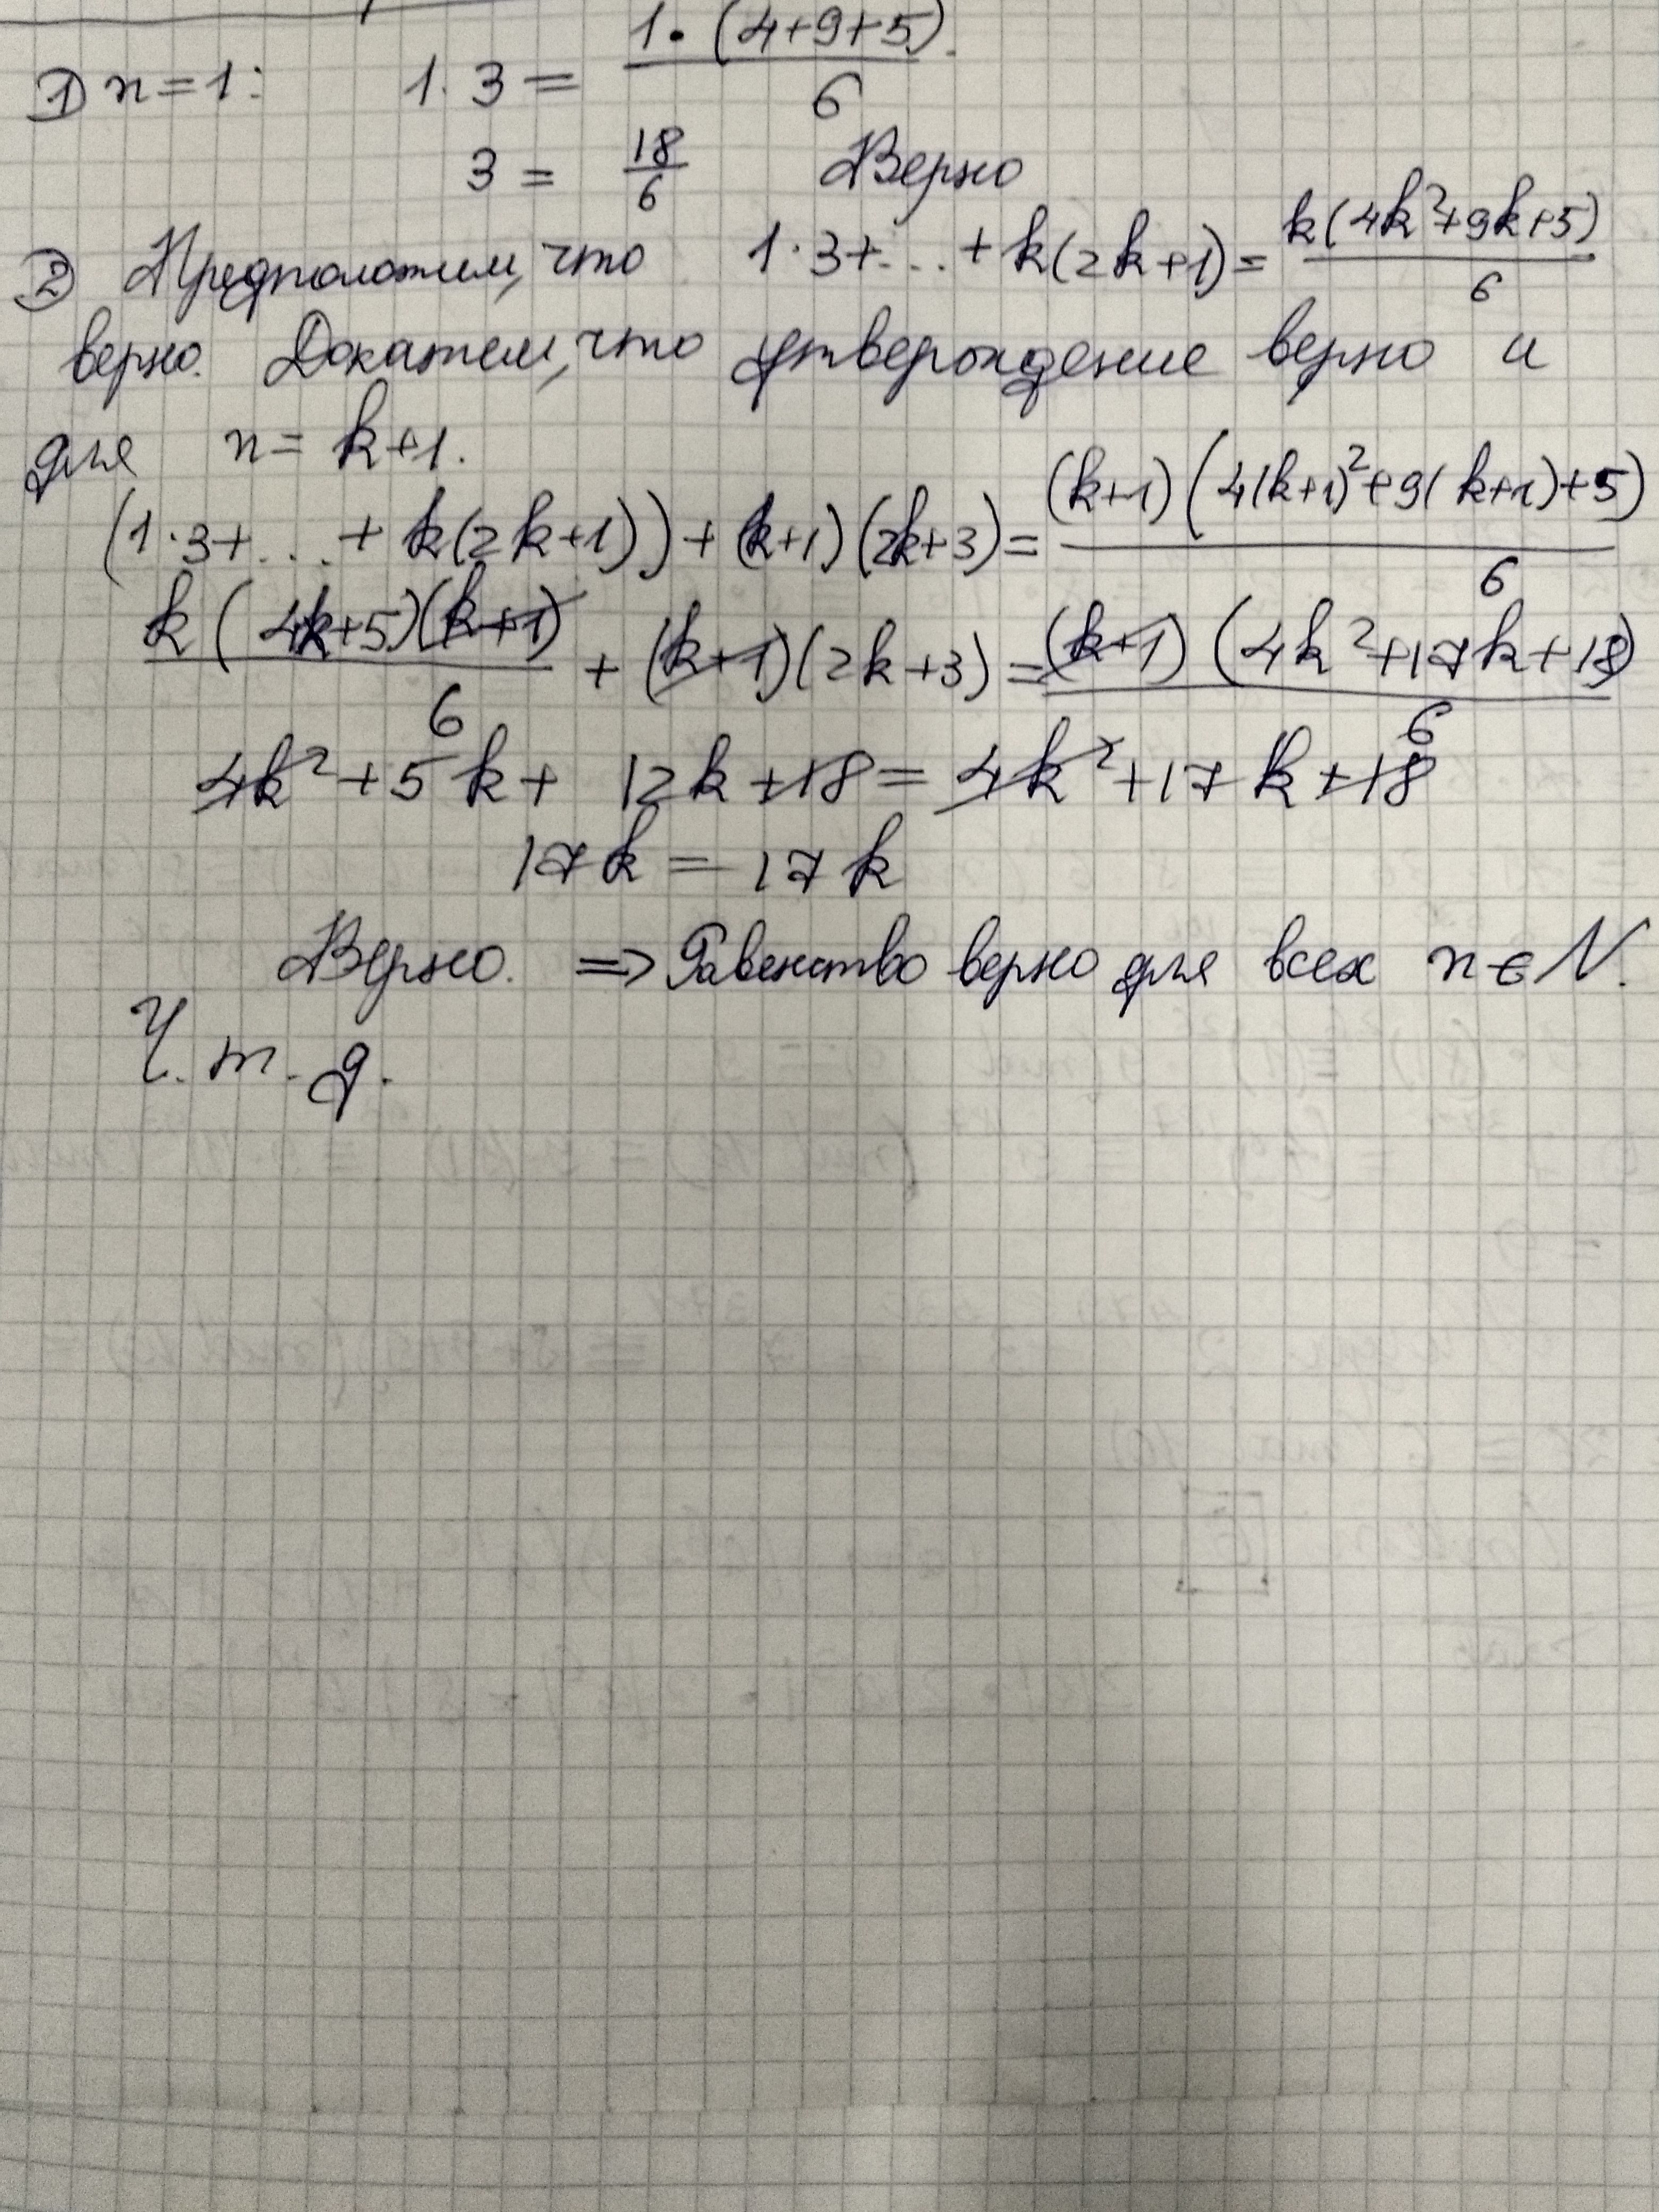 ① n=1: 1·3 = 1·(4+9+5)/6
3 = 18/6 Верно
② Предположим, что 1·3+...+k(2k+1)= k(4k²+9k+5)/6
верно. Докажем, что утверждение верно и
для n= k+1.
(1·3+...+k(2k+1))+(k+1)(2k+3)= (k+1)(4(k+1)²+9(k+1)+5)/6
k(4k+5)(k+1)/6 + (k+1)(2k+3)= (k+1)(4k²+17k+18)/6
4k²+5k+ 12k+18= 4k²+17k+18
17k = 17k
Верно. => Равенство верно для всех n∈N.
Ч. т. д.